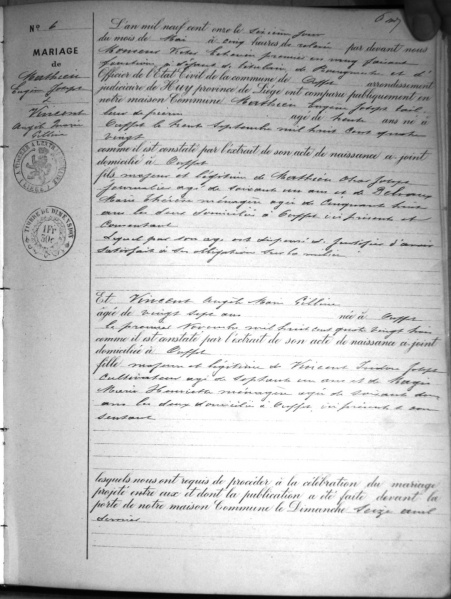 Nº 6
MARIAGE
de
Mathieu
Eugène Joseph
&
Vincent
Angèle Marie
TIMBRE DE DIMENSION
1 Fr
L'an mil neuf cent onze le sixième jour
du mois de Mai à cinq heures de relevée par devant nous
Officier de l'État Civil de la commune de Ouffet arrondissement
judiciaire de HUY province de Liége ont comparu publiquement en
notre maison Commune Mathieu Eugène Joseph
de pierre âgé de trente ans né à
Ouffet le trente Septembre mil huit cent quatre
vingt
comme il est constaté par l'extrait de son acte de naissance a-joint
domicilié à Ouffet
fils majeur et légitime de Mathieu Joseph
journalier âgé de soixante un ans et de
Marie Thérèse ménagère âgée de Cinquante huit
ans les deux domiciliés à Ouffet ici présents et
Consentant
Lequel par son âge est dispensé de justifier d'avoir
satisfait à ses obligations sur la milice
Et Vincent Angèle Marie
âgée de vingt sept ans née à Ouffet
le premier Novembre mil huit cent quatre vingt trois
comme il est constaté par l'extrait de son acte de naissance a-joint
domiciliée à Ouffet
fille majeure et légitime de Vincent Joseph
Cultivateur âgé de septante un ans et de
Marie Henriette ménagère âgée de soixante deux
ans les deux domiciliés à Ouffet, ici présents et con
sentant
lesquels nous ont requis de procéder à la célébration du mariage
projeté entre eux et dont la publication a été faite devant la
porte de notre maison Commune le Dimanche seize avril
dernier